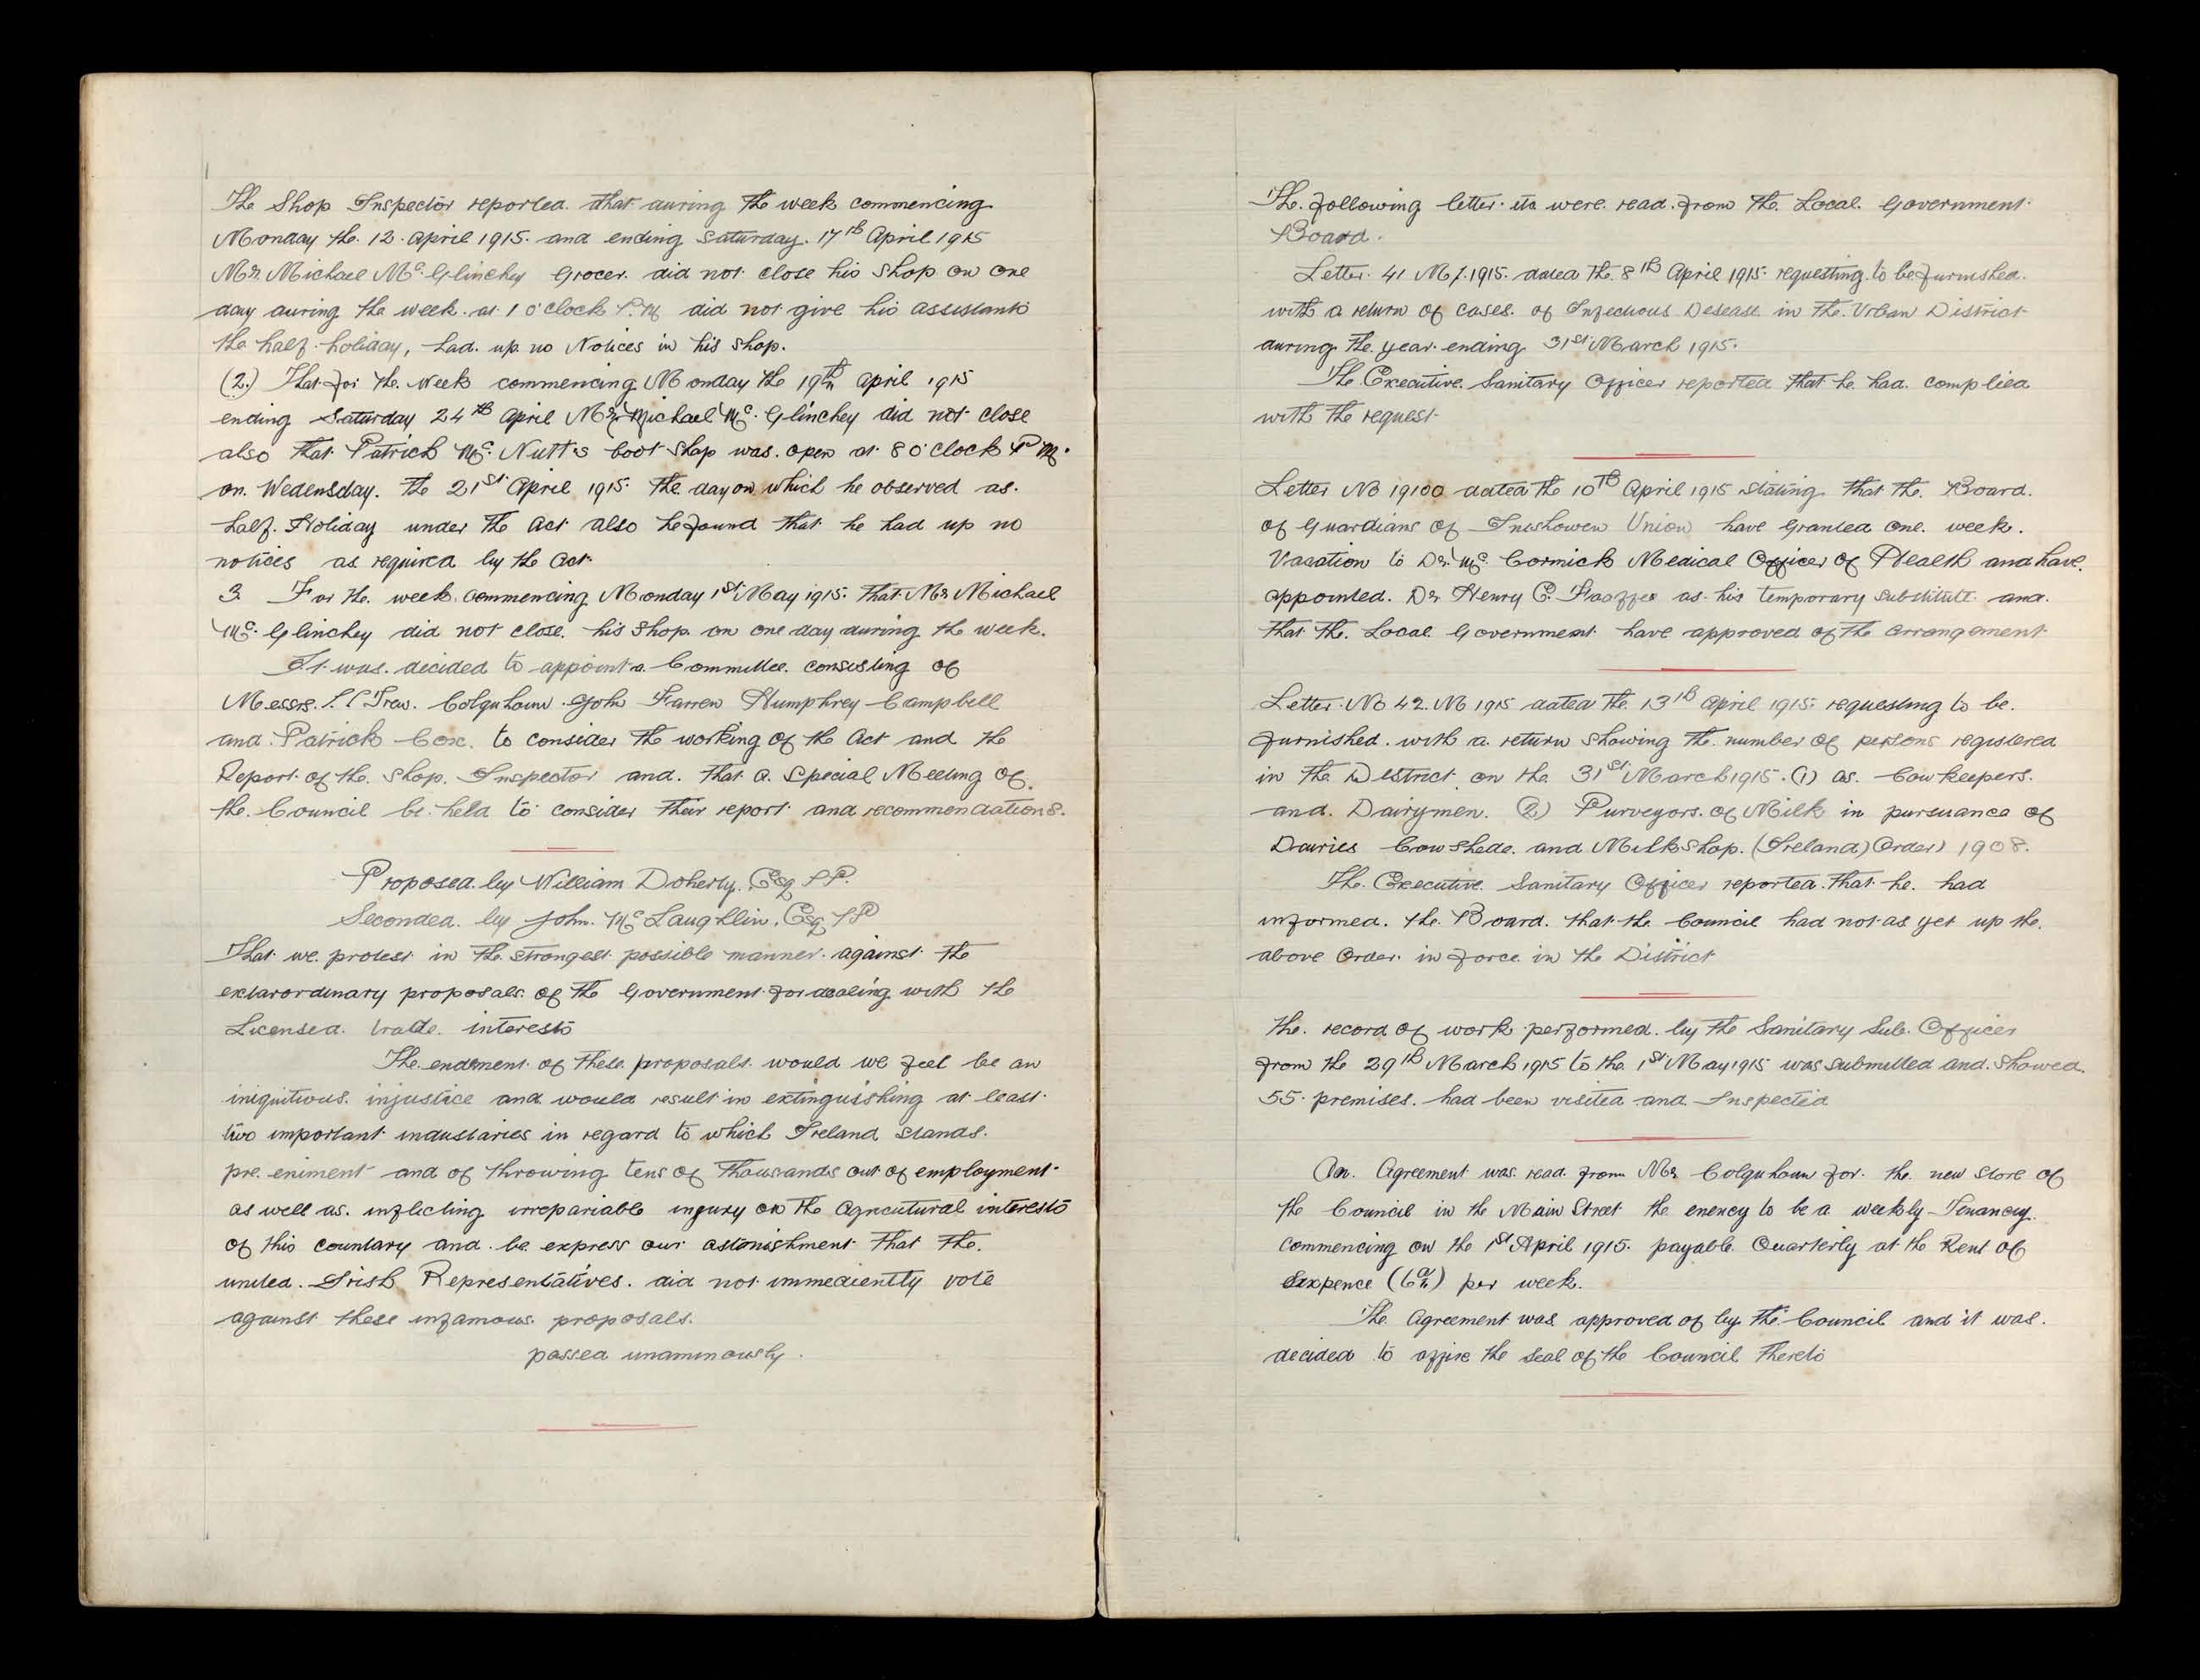 The Shop Inspector reported that during the week commencing
Monday the 12 April 1915 and ending Saturday 17th April 1915
Mr. Michael McGlinchey Grocer did not close his shop on one
day during the week at 1 o'clock P.M did not give his assistants
the half holiday, had up no Notices in his shop.
(2.) That for the week commencing Monday the 19th April 1915
ending Saturday 24th April Mr Michael McGlinchey did not close
also that Patrick McNutt's boot shop was open at 8 o'clock P.M.
on Wedensday the 21st April 1915 the day on which he observed as
half Holiday under the Act also he found that he had up no
notices as required by the Act
3 For the week commencing Monday 1st May 1915 that Mr Michael
McGlinchey did not close his shop on one day during the week.
It was decided to appoint a Committee consisting of
Messrs. Trew. Colquhoun John Farren Humphrey Campbell
and Patrick Cox. to consider the working of the Act and the
Report of the Shop Inspector and that a Special Meeting of
the Council be held to consider their report and recommendations.
Proposed by William Doherty, Esq J.P.
Seconded by John McLaughlin, Esq J.P
That we protest in the strongest possible manner against the
extarordinary proposals of the Government for dealing with the
Licensed trade interests
The endement of these proposals would we feel be an
iniquitious injustice and would result in extinguishing at least
two important industaries in regard to which Ireland stands
pre eniment and of throwing tens of thousands out of employment
as well as inflicting irrepariable injury on the Agricutural interests
of this countary and be express our astonishment that the
united Irish Representatives did not immediently vote
against these infamous proposals.
passed unaminously.
The following letter etc were read from the Local Government
Board.
Letter 41 M/1915 dated the 8th April 1915 requesting to be furnished
with a return of cases of Infectious Desease in the Urban District
during the year ending 31st March 1915.
The Executive Sanitary Officer reported that he had complied
with the request
Letter No 19100 dated the 10th April 1915 stating that the Board
of Guardians of Inishowen Union have granted one week
Vacation to Dr. McCormick Medical Officer of Health and have
appointed Dr Henry C. as his temporary substitute and
that the Local Government have approved of the arrangement
Letter No 42. M 1915 dated the 13th April 1915 requesting to be
furnished with a return showing the number of persons registered
in the District on the 31st March 1915. (1) as Cowkeepers
and Dairymen. (2) Purveyors of Milk in pursuance of
Dairies Cowsheds and Milkshop (Ireland) Order) 1908.
The Executive Sanitary Officer reported that he had
informed the Board that the Council had not as yet up the
above Order in force in the District
The record of work performed by the Sanitary Sub Officer
from the 29th March 1915 to the 1st May 1915 was submitted and showed
55 premises had been visited and Inspected
An Agreement was read from Mr Colquhoun for the new store of
the Council in the Main Street the enency to be a weekly Tenancy
commencing on the 1st April 1915 payable Quarterly at the Rent of
Sixpence (6d) per week.
The Agreement was approved of by the Council and it was
decided to affix the Seal of the Council thereto